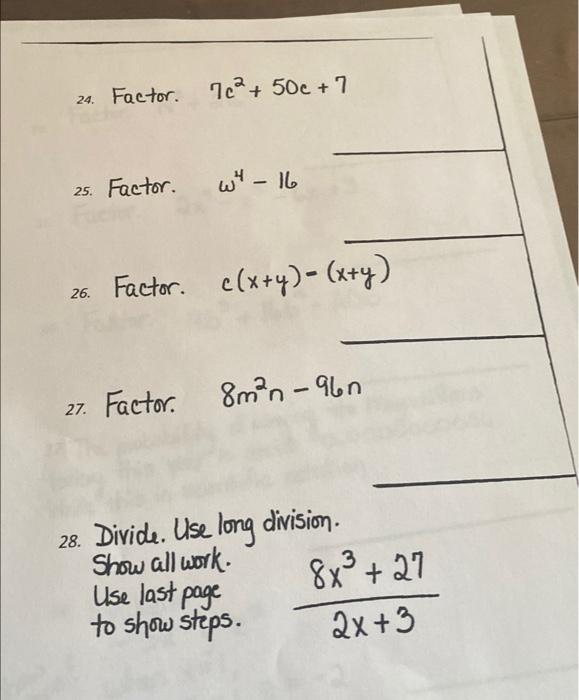 24. Factor. 7c² + 50c + 7
25. Factor. w⁴ - 16
26. Factor. c(x+y) - (x+y)
27. Factor. 8m²n - 96n
28. Divide. Use long division.
Show all work.
Use last page
to show steps.
8x³ + 27
2x + 3